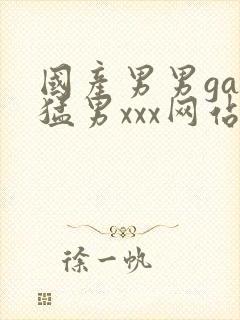 國產男男ga
猛男xxx网佔
徐一帆